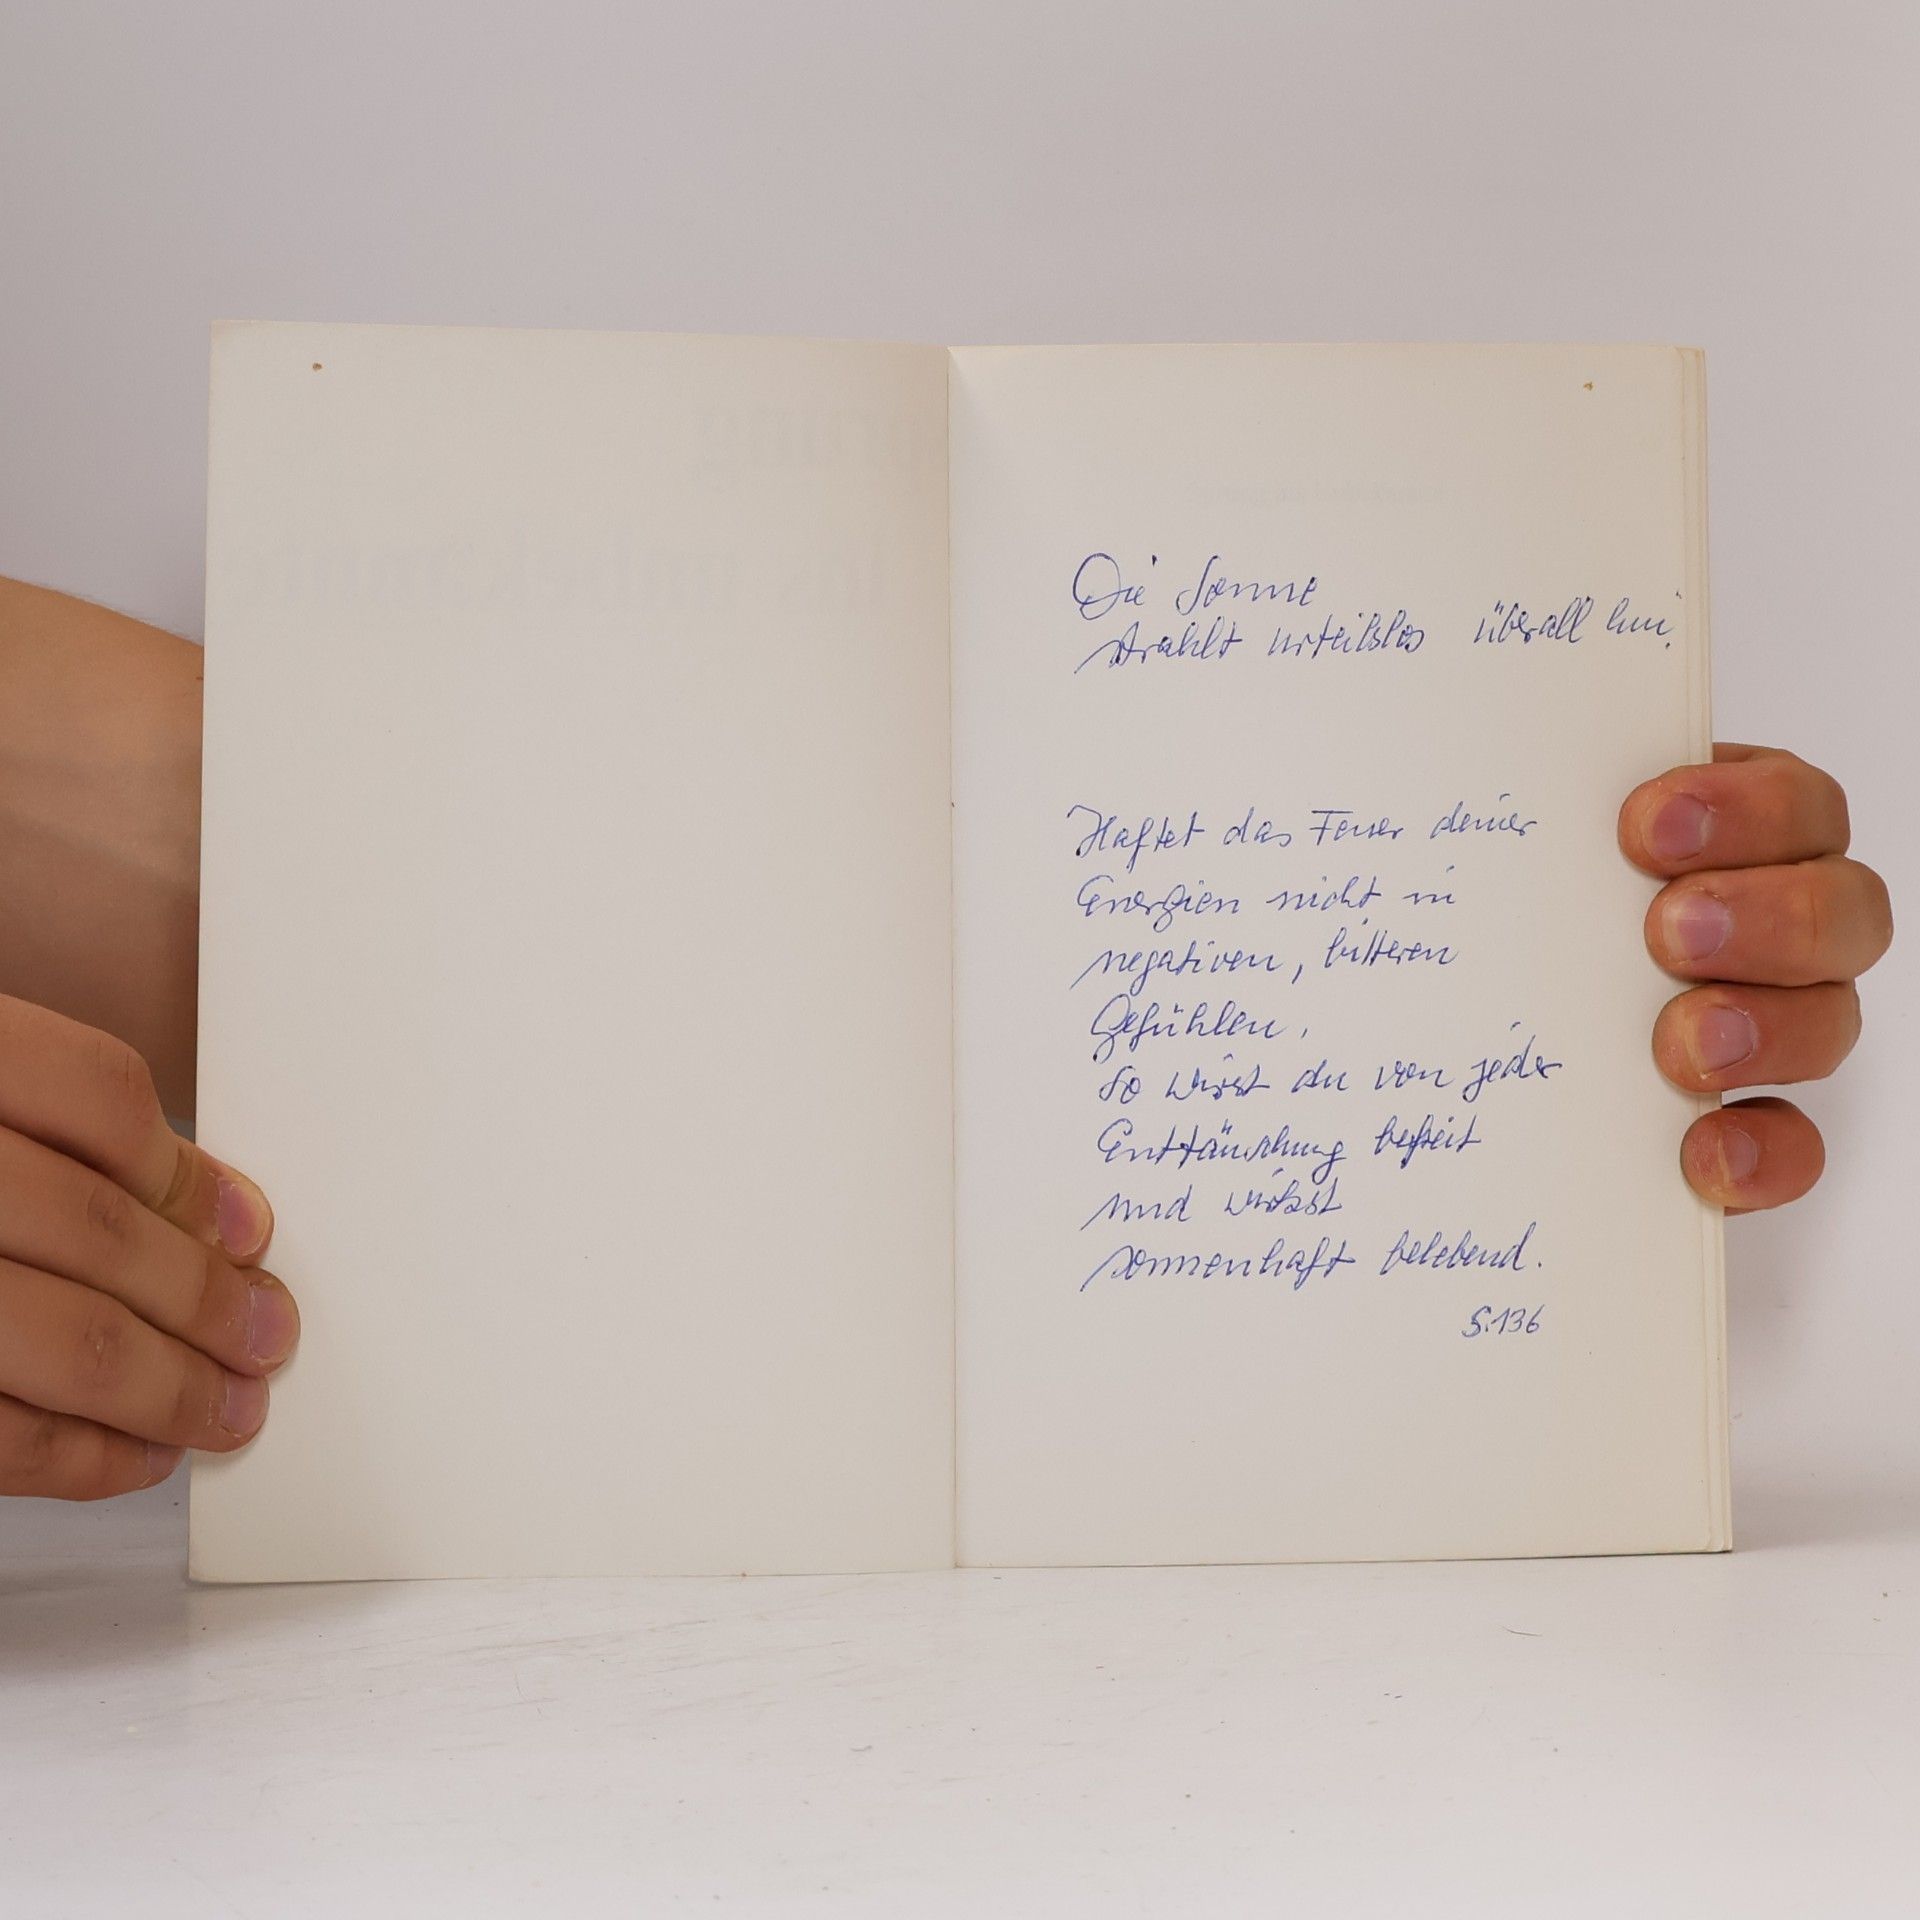 Die Sonne
strahlt urteilslos überall hin.
Haftet das Feuer deiner
Energien nicht in
negativen, bitteren
Gefühlen,
so wirst du von jeder
Enttäuschung befreit
und wirkst
sonnenhaft belebend.
S.136